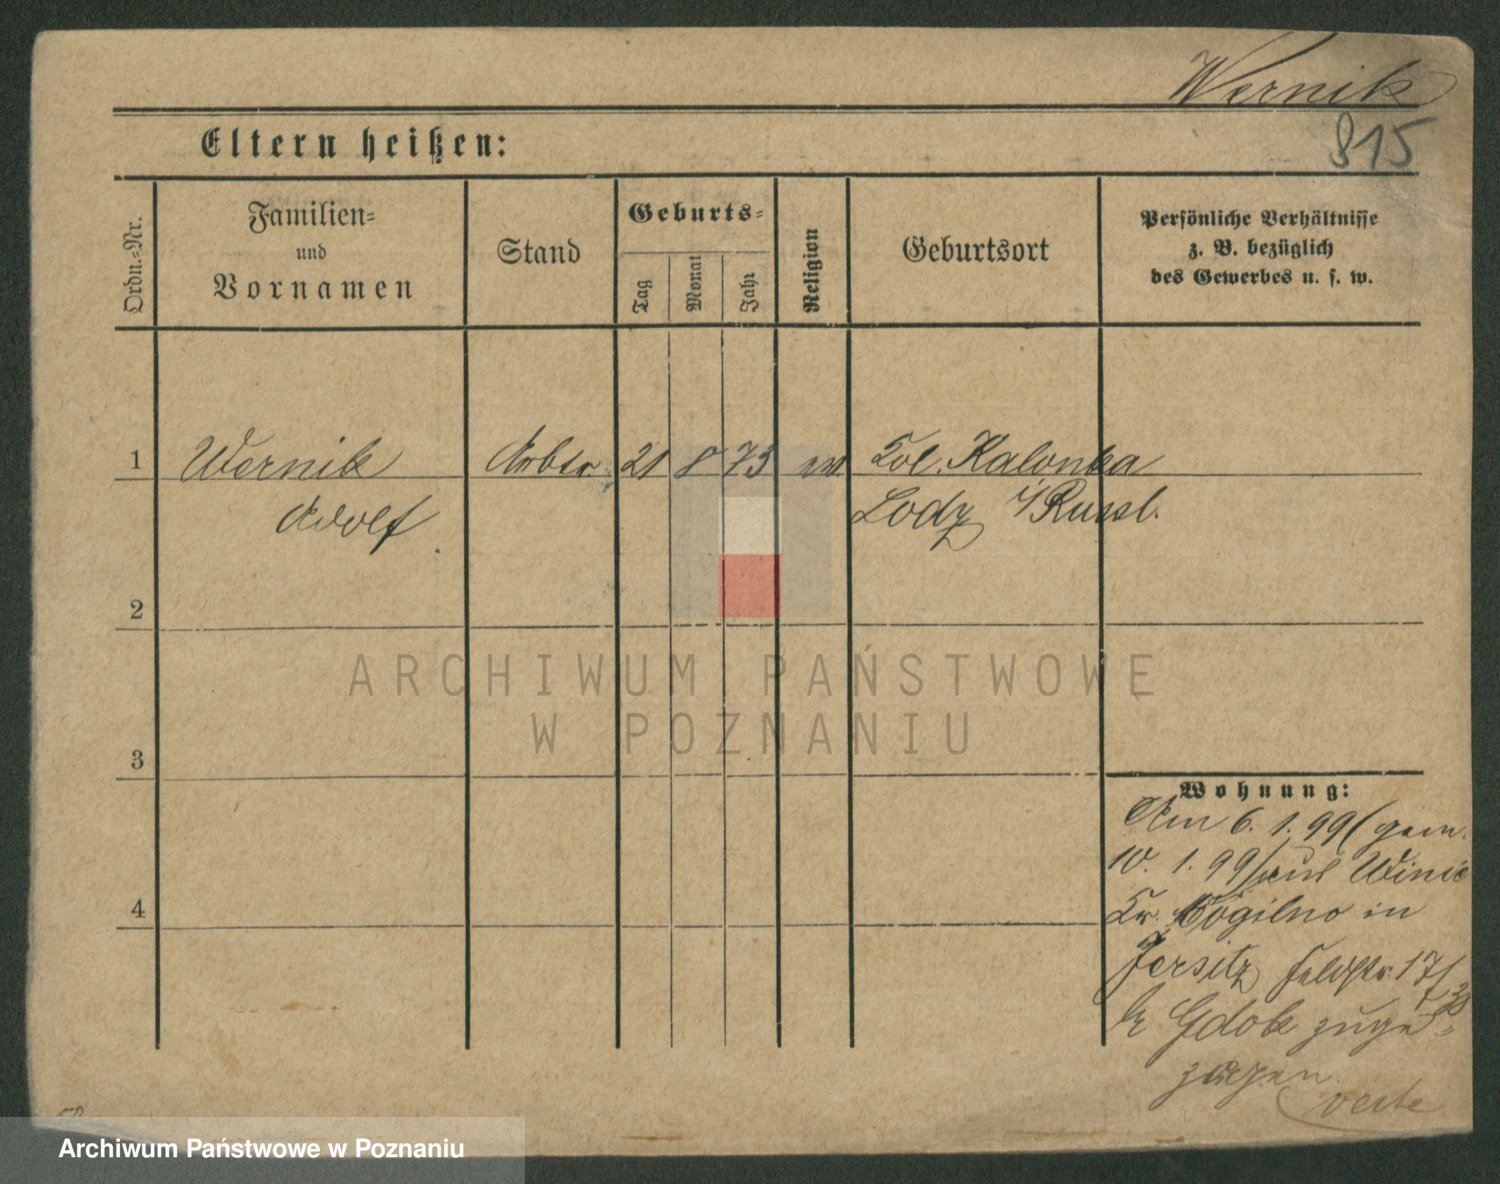 Wernik
815
Eltern heißen:
Ordn.-Nr.
Familien-
und
Vornamen
Stand
Geburts-
Tag
Monat
Jahr
Religion
Geburtsort
Persönliche Verhältnisse
z. B. bezüglich
des Gewerbes u. s. w.
1
Wernik
Arbtr.
21
8
73
ev.
Col. Kalonka
Adolf
Lodz i/Russl.
2
3
4
Wohnung:
Am 6. 1. 99 (gem.
10. 1. 99) aus Winic
Kr. Mogilno in
Jersitz Feldstr. 17/
b Gdok zuge-
zogen.
verte
ARCHIWUM PAŃSTWOWE
W POZNANIU
Archiwum Państwowe w Poznaniu